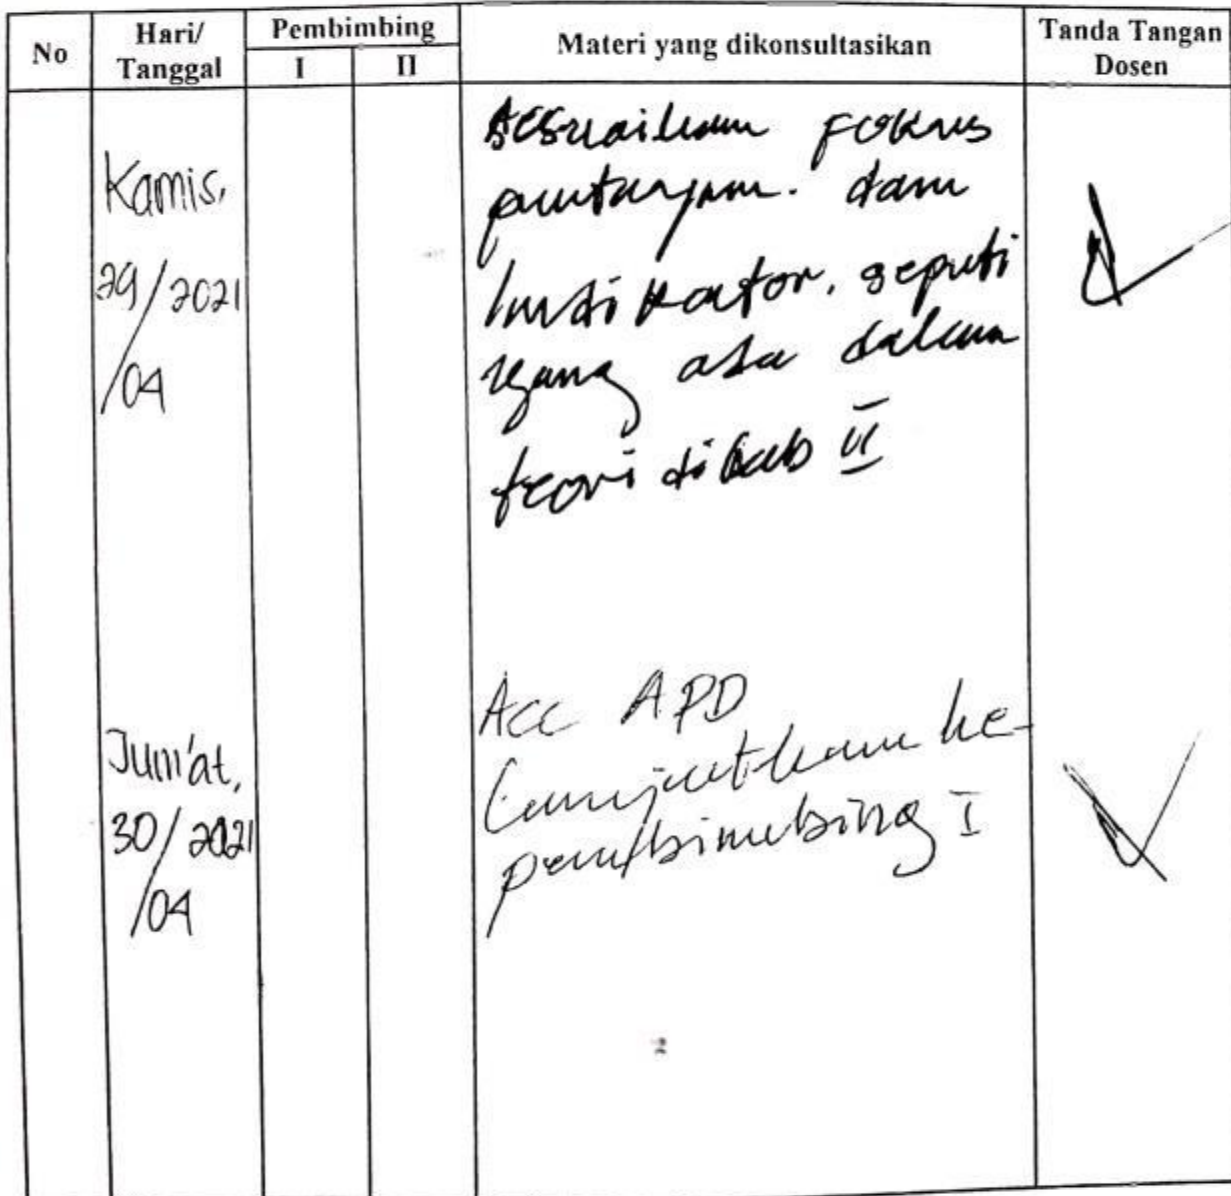 No Hari/ Pembimbing Materi yang dikonsultasikan Tanda Tangan
Tanggal I II Dosen
Kamis,
29/2021
/04
sesuaikan Fokus
pertanyaan. dan
Indikator. seperti
yang ada dalam
teori di bab II
Jum'at,
30/2021
/04
Acc APD
Lanjutkan ke-
pembimbing I